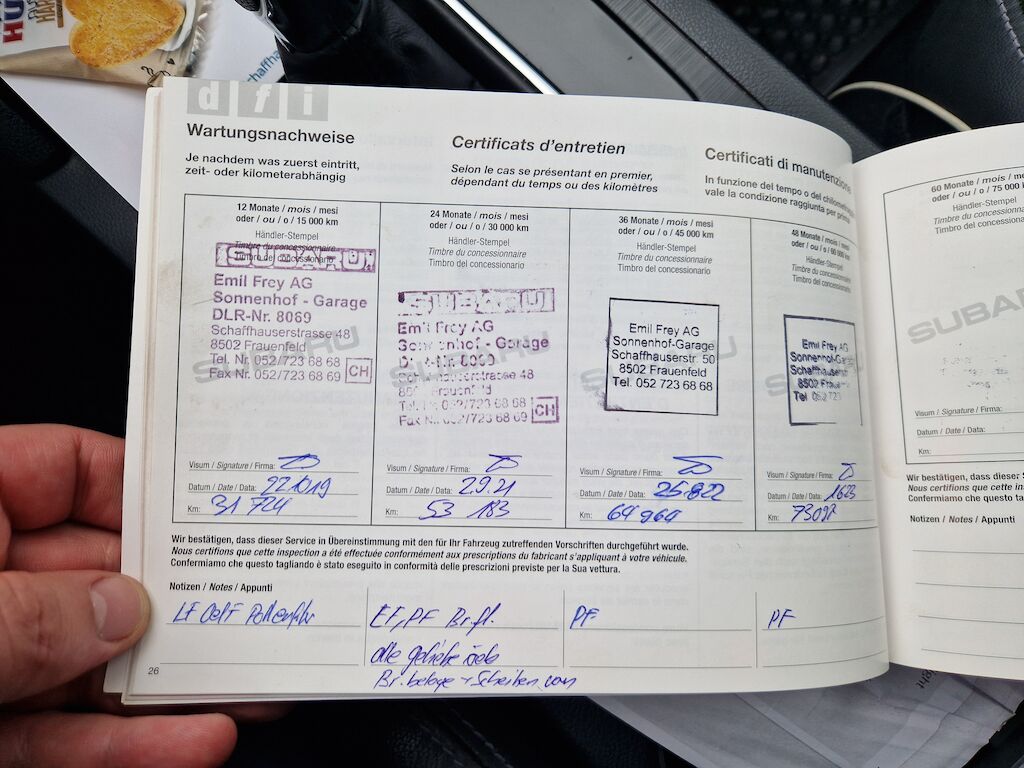 dfi
Wartungsnachweise
Je nachdem was zuerst eintritt,
zeit- oder kilometerabhängig
Certificats d'entretien
Selon le cas se présentant en premier,
dépendant du temps ou des kilomètres
Certificati di manutenzione
In funzione del tempo o del chilometraggio
vale la condizione raggiunta per prima
12 Monate / mois / mesi
oder / ou / o / 15 000 km
Händler-Stempel
Timbre du concessionnaire
Timbro del concessionario
SUBARU
Emil Frey AG
Sonnenhof - Garage
DLR-Nr. 8069
Schaffhauserstrasse 48
8502 Frauenfeld
Tel. Nr. 052/723 68 68
Fax Nr. 052/723 68 69 CH
Visum / Signature / Firma:
Datum / Date / Data: 22.10.19
Km: 31 724
24 Monate / mois / mesi
oder / ou / o / 30 000 km
Händler-Stempel
Timbre du concessionnaire
Timbro del concessionario
SUBARU
Emil Frey AG
Sonnenhof - Garage
DLR-Nr. 8069
Schaffhauserstrasse 48
8502 Frauenfeld
Tel. Nr. 052/723 68 68
Fax Nr. 052/723 68 69 CH
Visum / Signature / Firma:
Datum / Date / Data: 2.9.21
Km: 53 183
36 Monate / mois / mesi
oder / ou / o / 45 000 km
Händler-Stempel
Timbre du concessionnaire
Timbro del concessionario
Emil Frey AG
Sonnenhof-Garage
Schaffhauserstr. 50
8502 Frauenfeld
Tel. 052 723 68 68
Visum / Signature / Firma:
Datum / Date / Data: 25.8.22
Km: 64 964
48 Monate / mois / mesi
oder / ou / o / 60 000 km
Händler-Stempel
Timbre du concessionnaire
Timbro del concessionario
Emil Frey AG
Sonnenhof-Garage
Schaffhauserst
8502 Frauenf
Tel. 052 723
Visum / Signature / Firma:
Datum / Date / Data:
Km:
Wir bestätigen, dass dieser Service in Übereinstimmung mit den für Ihr Fahrzeug zutreffenden Vorschriften durchgeführt wurde.
Nous certifions que cette inspection a été effectuée conformément aux prescriptions du fabricant s'appliquant à votre véhicule.
Confermiamo che questo tagliando è stato eseguito in conformità delle prescrizioni previste per la Sua vettura.
Notizen / Notes / Appunti
PF
PF
Br.beläge + Scheiben von
26
60 Monate / mois / me
oder / ou / o / 75 000 k
Händler-Stempel
Timbre du concessionna
Timbro del concessiona
SUBARU
Visum / Signature / Firma:
Datum / Date / Data:
Km:
Wir bestätigen, dass dieser S
Nous certifions que cette ins
Confermiamo che questo ta
Notizen / Notes / Appunti